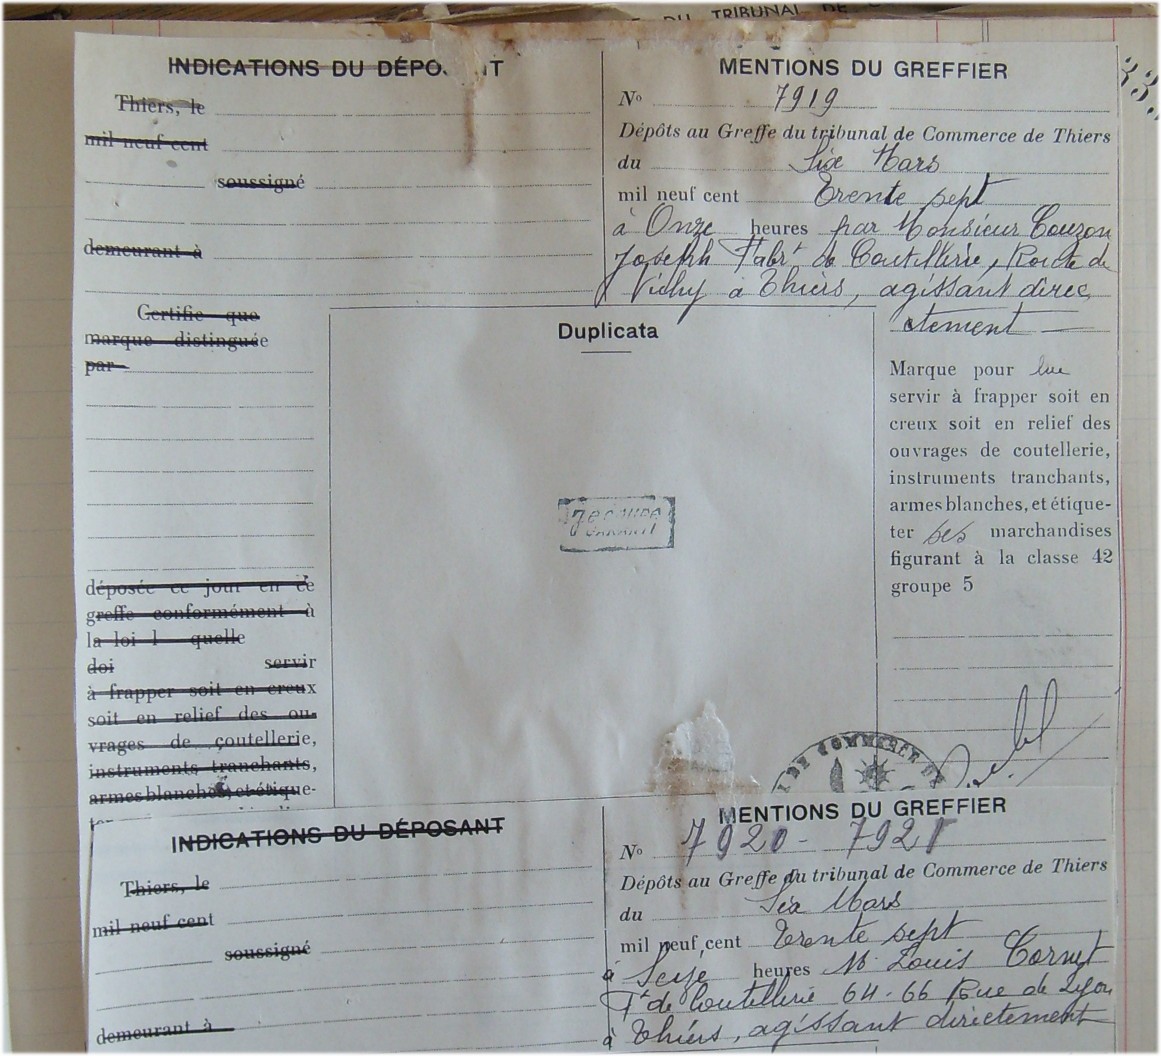 DU TRIBUNAL DE
33.
INDICATIONS DU DÉPO NT
Thiers, le
mil neuf cent
soussigné
demeurant à
Certifie que
marque distinguée
par
déposée ce jour en ce
greffe conformément à
la loi l quelle
doi servir
à frapper soit en creux
soit en relief des ou-
vrages de coutellerie,
instruments tranchants,
armes blanches, et étique-
MENTIONS DU GREFFIER
No 7919
Dépôts au Greffe du tribunal de Commerce de Thiers
du Six Mars
mil neuf cent Trente sept
à Onze heures par Monsieur Couzon
Joseph Fabrt de Coutellerie, Route de
Vichy à Thiers, agissant direc
ctement
Duplicata
GARANTI
Marque pour lui
servir à frapper soit en
creux soit en relief des
ouvrages de coutellerie,
instruments tranchants,
armes blanches, et étique-
ter ses marchandises
figurant à la classe 42
groupe 5
DE COMMERCE DE
INDICATIONS DU DÉPOSANT
Thiers, le
mil neuf cent
soussigné
demeurant à
MENTIONS DU GREFFIER
No 7920 - 7921
Dépôts au Greffe du tribunal de Commerce de Thiers
du Six Mars
mil neuf cent Trente sept
à Seize heures Mr Louis Cornet
Ft de Coutellerie 64-66 Rue de Lyon
à Thiers, agissant directement